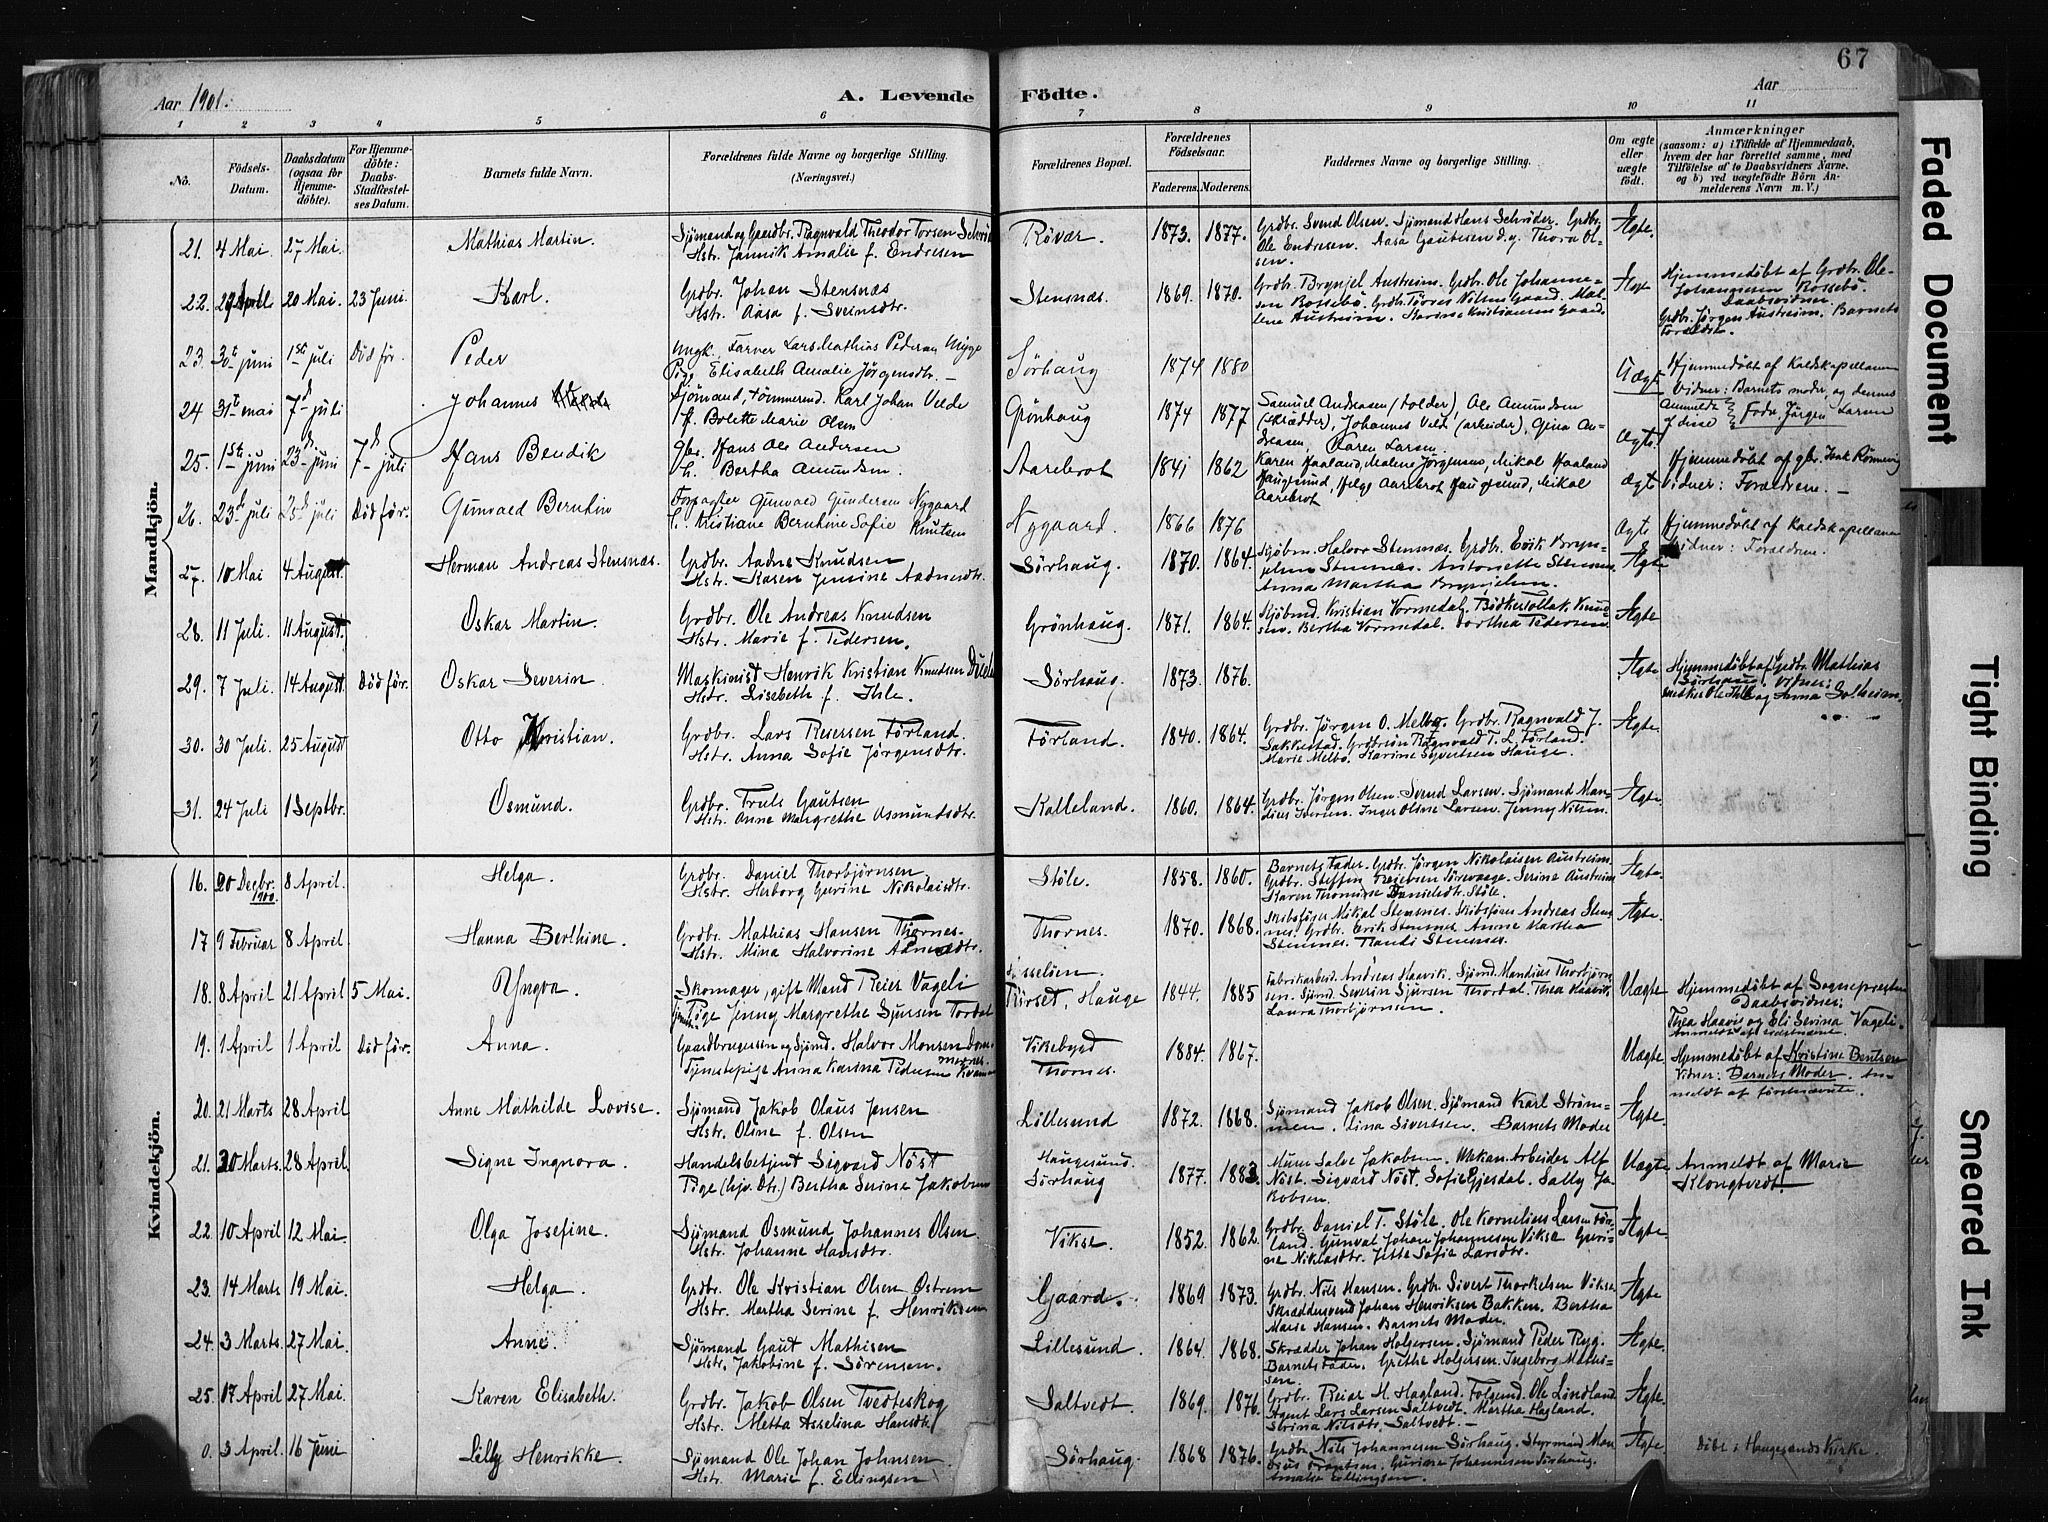 67
Aar 1901.
A. Levende Födte.
Aar
1 2 3 4 5 6 7 8 9 10 11
No.
Födsels-Datum.
Daabsdatum (ogsaa for Hjemmedöbte).
For Hjemmedöbte: Daabs-Stadfæstelses Datum.
Barnets fulde Navn.
Forældrenes fulde Navne og borgerlige Stilling.
(Næringsvei.)
Forældrenes Bopæl.
Forældrenes Födselsaar.
Faderens. Moderens.
Faddernes Navne og borgerlig Stilling.
Om ægte eller uægte födt.
Anmærkninger
(saasom: a) i Tilfælde af Hjemmedaab, hvem der har forrettet samme, med Tilföielse af to Daabsvidners Navne. og b) ved uægtefödte Börn Anmelderens Navn m. V.)
Mandkjön.
21. 4 Mai. 27 Mai. Mathias Martin. Sjömand og Gaardbr. Ragnvald Theodor Torsen
Hstr. Jannik Amalie f. Endresen
Røvær. 1873. 1877. Grdbr. Svend Olsen. Sjömand Hans Schröder. Grdbr.
Ole Endresen. Aasa Gautesen d.y. Thora Olsen.
Ægte.
22. April 20 Mai. 23 Juni. Karl. Grdbr. Johan Stensnæs
Hstr. Aasa f. Sveinsdtr.
Stensnæs. 1869. 1870. Grdbr. Brynjel Austreim. Grdbr. Ole Johannesen Rossebö. Grdbr. Törres Nilsen Gaard. Malene Austreim. Karine Kristiansen Gaard.
Ægte Hjemmedöbt af Grdbr. Ole Johannesen Rossebö.
Daabsvidner:
Grdbr. Jörgen Austreim. Barnets Forældre.
23. 30te juni 1ste juli Död för. Peder Ungk. Farver Lars Mathias Pedersen Mygge
Pige Elisabeth Amalie Jörgensdtr.
Sörhaug 1874 1880 Uægte Hjemmedöbt af Kaldskapellanen
Vidner: Barnets moder, og dennes
Anmeldt af disse Fader, Jörgen Larsen
24 31te mai 7de juli Johannes Sjömand, tömmermd. Karl Johan Velde
f. Bolette Marie Olsen
Grönhaug 1874 1877 Samuel Andreasen (tolder), Ole Amundsen
(skrædder), Johannes Velde (arbeider), Gina Andreasen, Karen Larsen.
Ægte.
25. 1ste juni 23de juni 7de juli Hans Bendik gbr. Hans Ole Andersen
h. Bertha Amundsen.
Aarebrot 1841 1862 Karen Haaland, Malene Jörgensen, Mikal Haaland
Haugesund, Helge Aarebrot Haugesund, Mikal
Aarebrot
Ægte Hjemmedöbt af gbr. Isak Rönnevig
Vidner: Forældrene.
26. 23de juli 25de juli Död för. Gunvald Berntin Forpagter Gunvald Gundersen Nygaard
h. Kristiane Berntine Sofie Knutsen
Nygaard. 1866 1876 Ægte Hjemmedöbt af Kaldskapellanen
Vidner: Forældrene.
27. 10 Mai 4 August. Herman Andreas Stensnæs. Grdbr. Aadne Knudsen
Hstr. Karen Jensine Aadnesdtr.
Sörhaug. 1870. 1864. Halvor Stensnæs. Grdbr. Erik Brynjelsen Stensnes. Antonette Stensnes.
Anna Martha Brynjelsen.
Ægte
28. 11 Juli. 11 August. Oskar Martin. Grdbr. Ole Andreas Knudsen
Hstr. Marie f. Pedersen.
Grönhaug. 1871. 1864. Kristian Vormedal. Knudsen. Bertha Vormedal. Dorthea Pedersen.
Ægte
29. 7 Juli. 14 August Död för. Oskar Severin. Maskinist Henrik Kristian Knudsen
Hstr. Lisebeth f. Ihle.
Sörhaug. 1873. 1876. Ægte Hjemmedöbt af Grdbr. Mathias
Sörhaug. Vidner:
Ole Ihle og Anna Solheim.
30. 30 Juli. 25 August Otto Kristian. Grdbr. Lars Resersen Förland.
Hstr. Anna Sofie Jörgensdtr.
Förland. 1840. 1864. Grdbr. Jörgen O. Melbö. Grdbr. Ragnvald J.
Sakkestad. Ragnvald T. L. Förland.
Marie Melbö. Karine Syvertsen Hauge.
Ægte.
31. 24 Juli 1 Septbr. Osmund. Grdbr. Truls Gautsen
Hstr. Anne Margrethe Osmundsdtr.
Kalleland. 1860. 1864. Grdbr. Jörgen Olsen. Svend Larsen. Sjömand Mandius Iversen. Inger Oline Larsen. Jenny Nilsen.
Ægte
Kvindekjön.
16. 20 Decbr. 1900. 8 April. Helga. Grdbr. Daniel Thorbjörnsen.
Hstr. Herborg Gurine Nikolaisdtr.
Stöle. 1858. 1860. Barnets Fader. Grdbr. Jörgen Nikolaisen Austreim.
Grdbr. Steffen Serine Austreim
Karen Thomine Danielsdtr. Stöle.
Ægte.
17 9 Februar 8 April. Hanna Berthine. Grdbr. Mathias Hansen Thornes.
Hstr. Mina Halvorine
Thornes. 1870. 1868. Mikal Stensnes. Skibsförer Andreas Stensnes. Grdbr. Erik Stensnes. Anne Martha
Stensnes. Randi Stensnes.
Ægte.
18. 8 April 21 April 5 Mai. Yngva. Skomager, gift Mand Reier Vageli
Pige Jenny Margrethe Sjursen Tordal
Hauge 1844. 1885 Fabrikarbeid. Andreas Haavik. Sjömd. Mandius Thorbjörnsen. Sjömd. Severin Sjursen Thordal. Thea Haavik.
Laura Thorbjörnsen.
Uægte Hjemmedöbt af Sognepresten
Daabsvidner:
Thea Haavik og Eli Serina Vageli.
19. 1 April 1 April Död för. Anna. Gaardbrugersön og Sjömd. Halvor Monsen
Tjenstepige Anna Karina Pedersen
Vikebygd
Thornes. 1884. 1867. Uægte. Hjemmedöbt af Kristine Bentsen
Vidner: Barnets Moder. Anmeldt af förstnævnte.
20. 21 Marts 28 April Anne Mathilde Lovise. Sjömand Jakob Olaus Jensen
Hstr. Oline f. Olsen
Lillesund 1872. 1868. Sjömand Jakob Olsen. Sjömand Karl Strömmen. Lina Sivertsen. Barnets Moder
Ægte.
21. 30 Marts. 28 April. Signe Ingnora. Handelsbetjent Sigvard Nöst
Pige Bertha Serine Jakobsen
Haugesund.
Sörhaug 1877. 1883. Murer Salve Jakobsen. Mekan. Arbeider Alf
Nöst. Sigvard Nöst. Sofie Gjesdal. Sally Jakobsen.
Uægte Anmeldt af Marie
Klongtvedt.
22. 10 April 12 Mai. Olga Josefine. Sjömand Osmund Johannes Olsen
Hstr. Johanne Hansdtr.
Vikse. 1852. 1862. Grdbr. Daniel T. Stöle. Ole Kornelius Larsen Förland. Gunval Johan Johannesen Vikse Gurine Niklasdtr. Jette Sofie Larsdtr.
Ægte
23. 14 Marts 19 Mai. Helga. Grdbr. Ole Kristian Olsen Östrem
Hstr. Martha Serine f. Henriksen
Gaard. 1869 1873. Grdbr. Nils Hansen. Grdbr. Sivert Thorkelsen Vikse
Skræddersvend Johan Henriksen Bakken. Bertha
Marie Hansen. Barnets Moder.
Ægte
24. 3 Marts. 27 Mai. Anne. Sjömand Gaut Mathisen
Hstr. Jakobine f. Sörensen.
Lillesund. 1864. 1868. Skrædder Johan Holgersen. Sjömand Peder Ryg.
Barnets Fader. Grethe Holgersen. Ingeborg Mathisen.
Ægte.
25. 17 April 27 Mai. Karen Elisabeth. Grdbr. Jakob Olsen Tvedteskog
Hstr. Metta Asselina Hansdtr.
Saltvedt. 1869. 1876. Grdbr. Reiar H. Hagland. Ole Lindland
Agent Lars Larsen Saltvedt. Martha Hagland.
Serina Nilsdtr. Saltvedt.
Ægte
0. 3 April. 16 Juni Lilly Henrikke. Sjömand Ole Johan Johnsen
Hstr. Marie f. Ellingsen
Sörhaug. 1868 1876. Grdbr. Nils Johannesen Sörhaug. Styrmand
Gurine Johannesen Sörhaug.
Amalie Ellingsen.
Ægte Döbt i Haugesunds Kirke.
Faded Document
Tight Binding
Smeared Ink